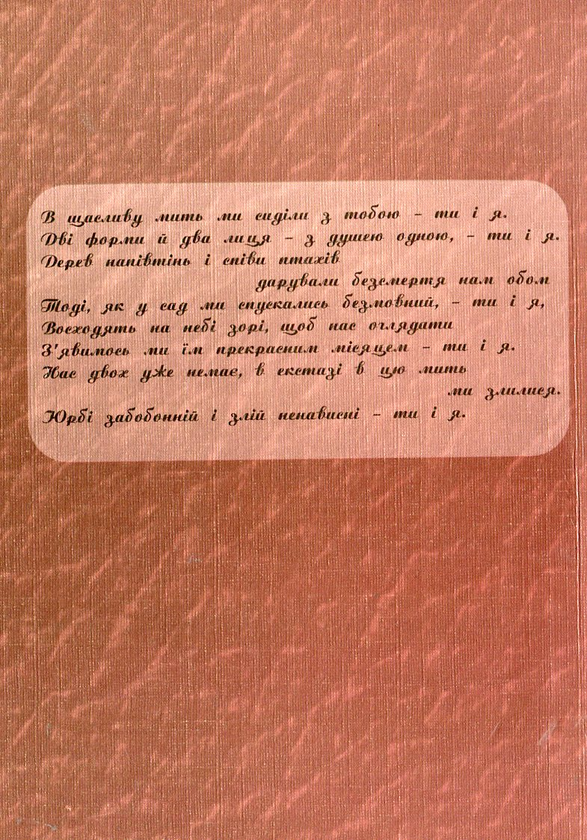 В щасливу мить ми сиділи з тобою – ти і я.
Дві форми й два лиця – з душею одною, – ти і я.
Дерев напівтінь і співи птахів
дарували безсмертя нам обом
Тоді, як у сад ми спускались безмовний, – ти і я,
Восходять на небі зорі, щоб нас оглядати
З'явимось ми їм прекрасним місяцем – ти і я.
Нас двох уже немає, в екстазі в цю мить
ми злилися.
Юрбі забобонній і злій ненависні – ти і я.